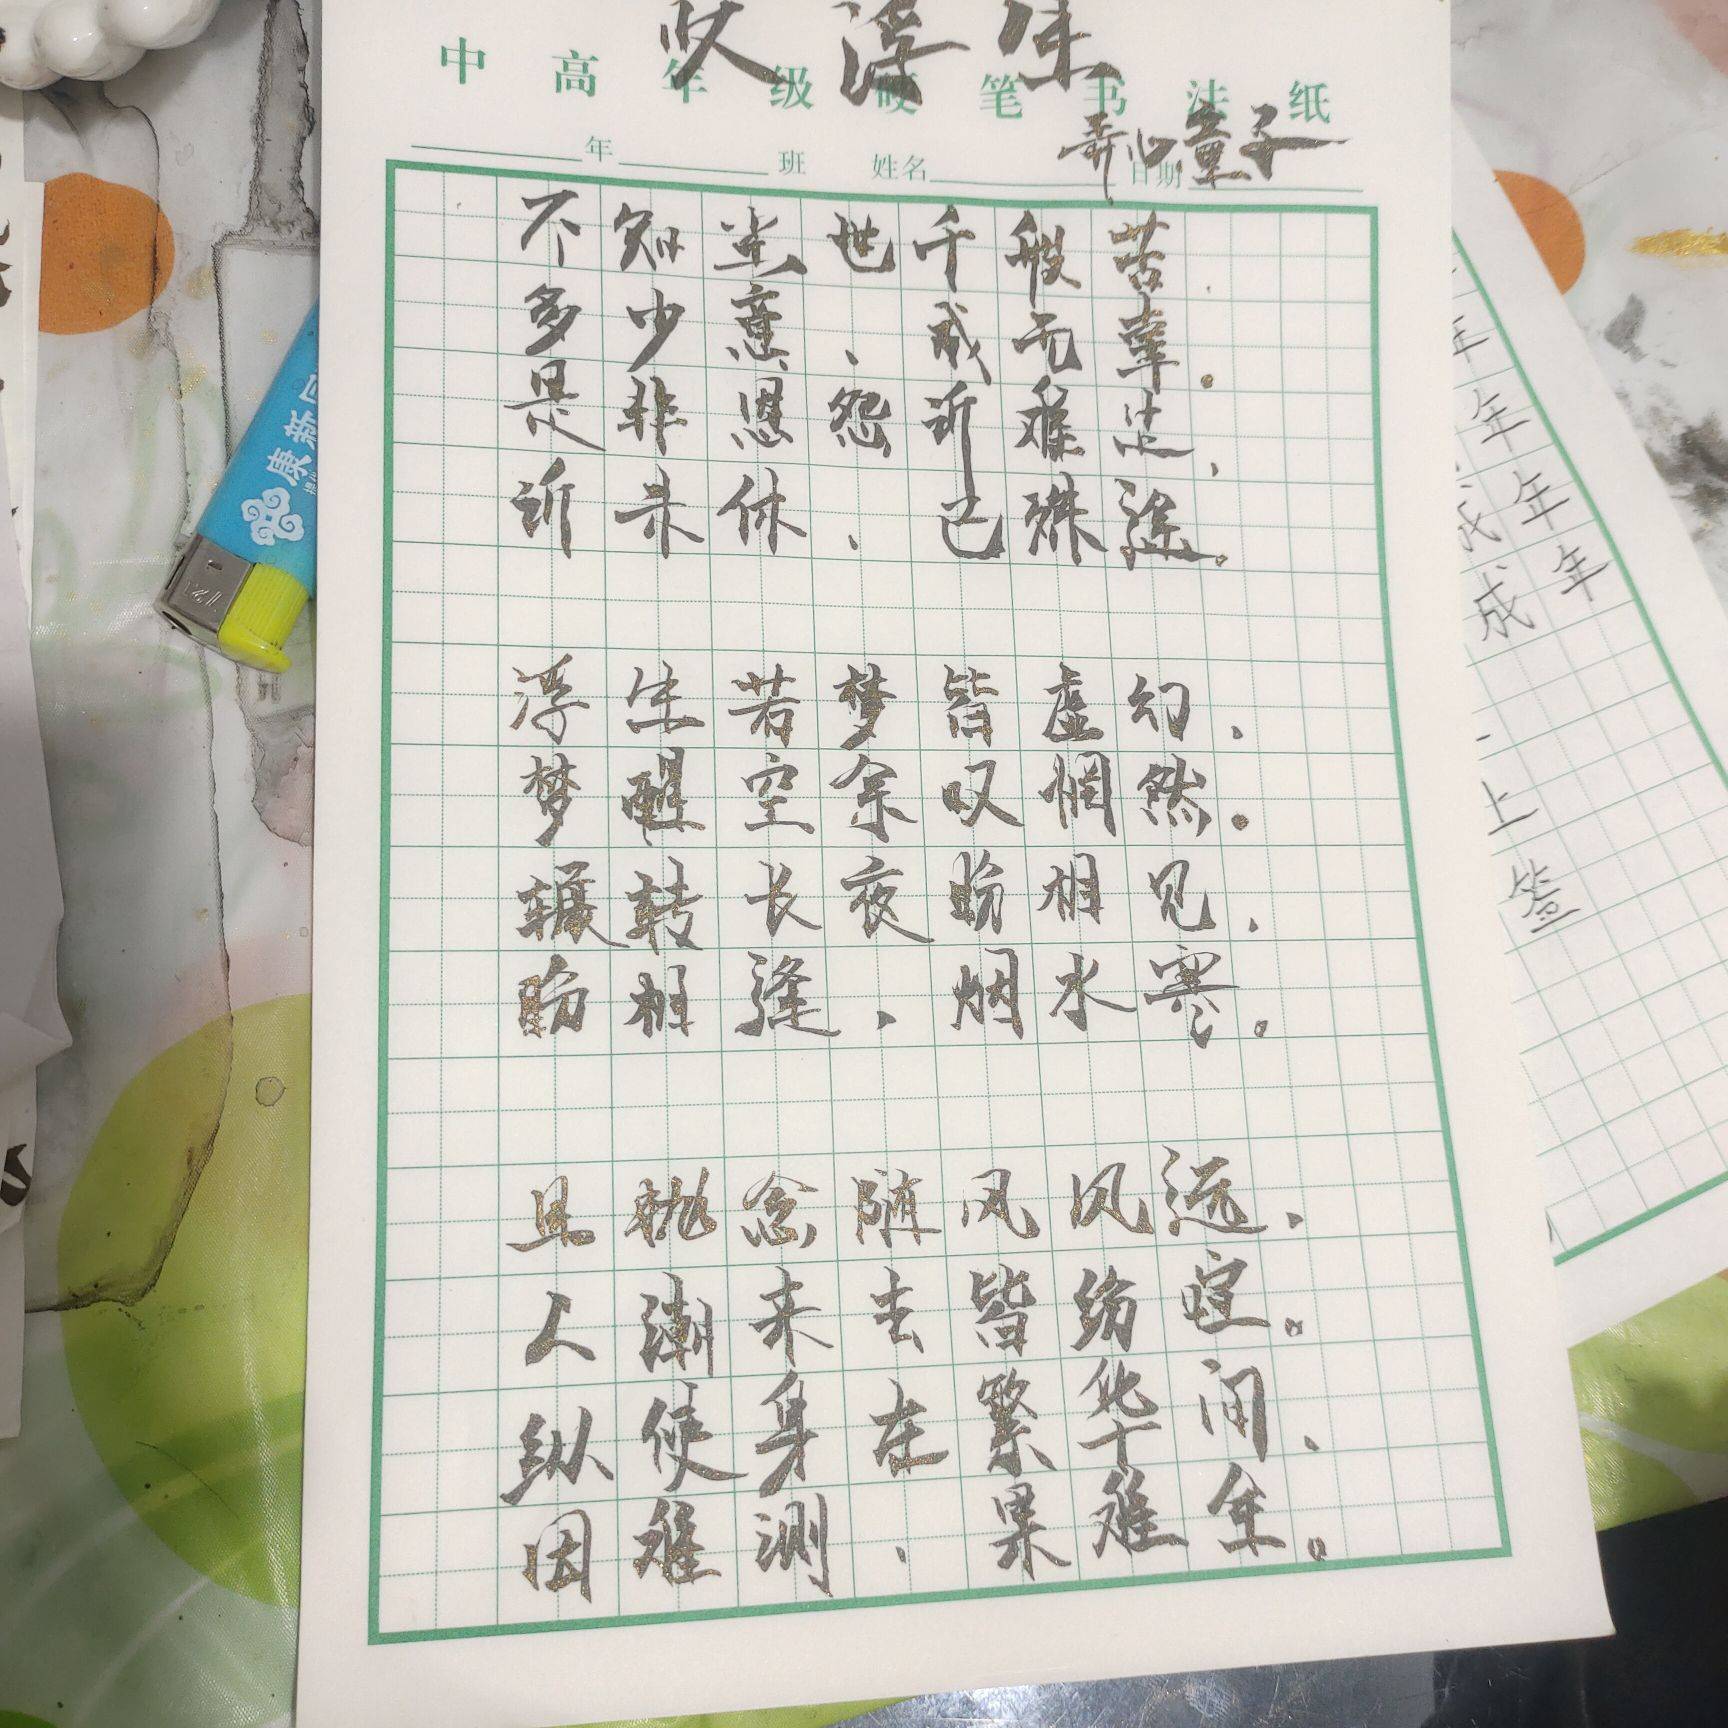 叹浮生
中高年级硬笔书法纸
弄心童子
年 班 姓名 日期
不知尘世千般苦，
多少意、成无辜。
是非恩怨诉难尘，
诉未休、已殊途。
浮生若梦皆虚幻，
梦醒空余叹惘然。
辗转长夜盼相见，
盼相逢、烟水寒。
且抛念随风风远，
人潮来去皆纷喧。
纵使身在繁华间、
因难测、果难年。
康新
年
年
成 年
成 年
上
签